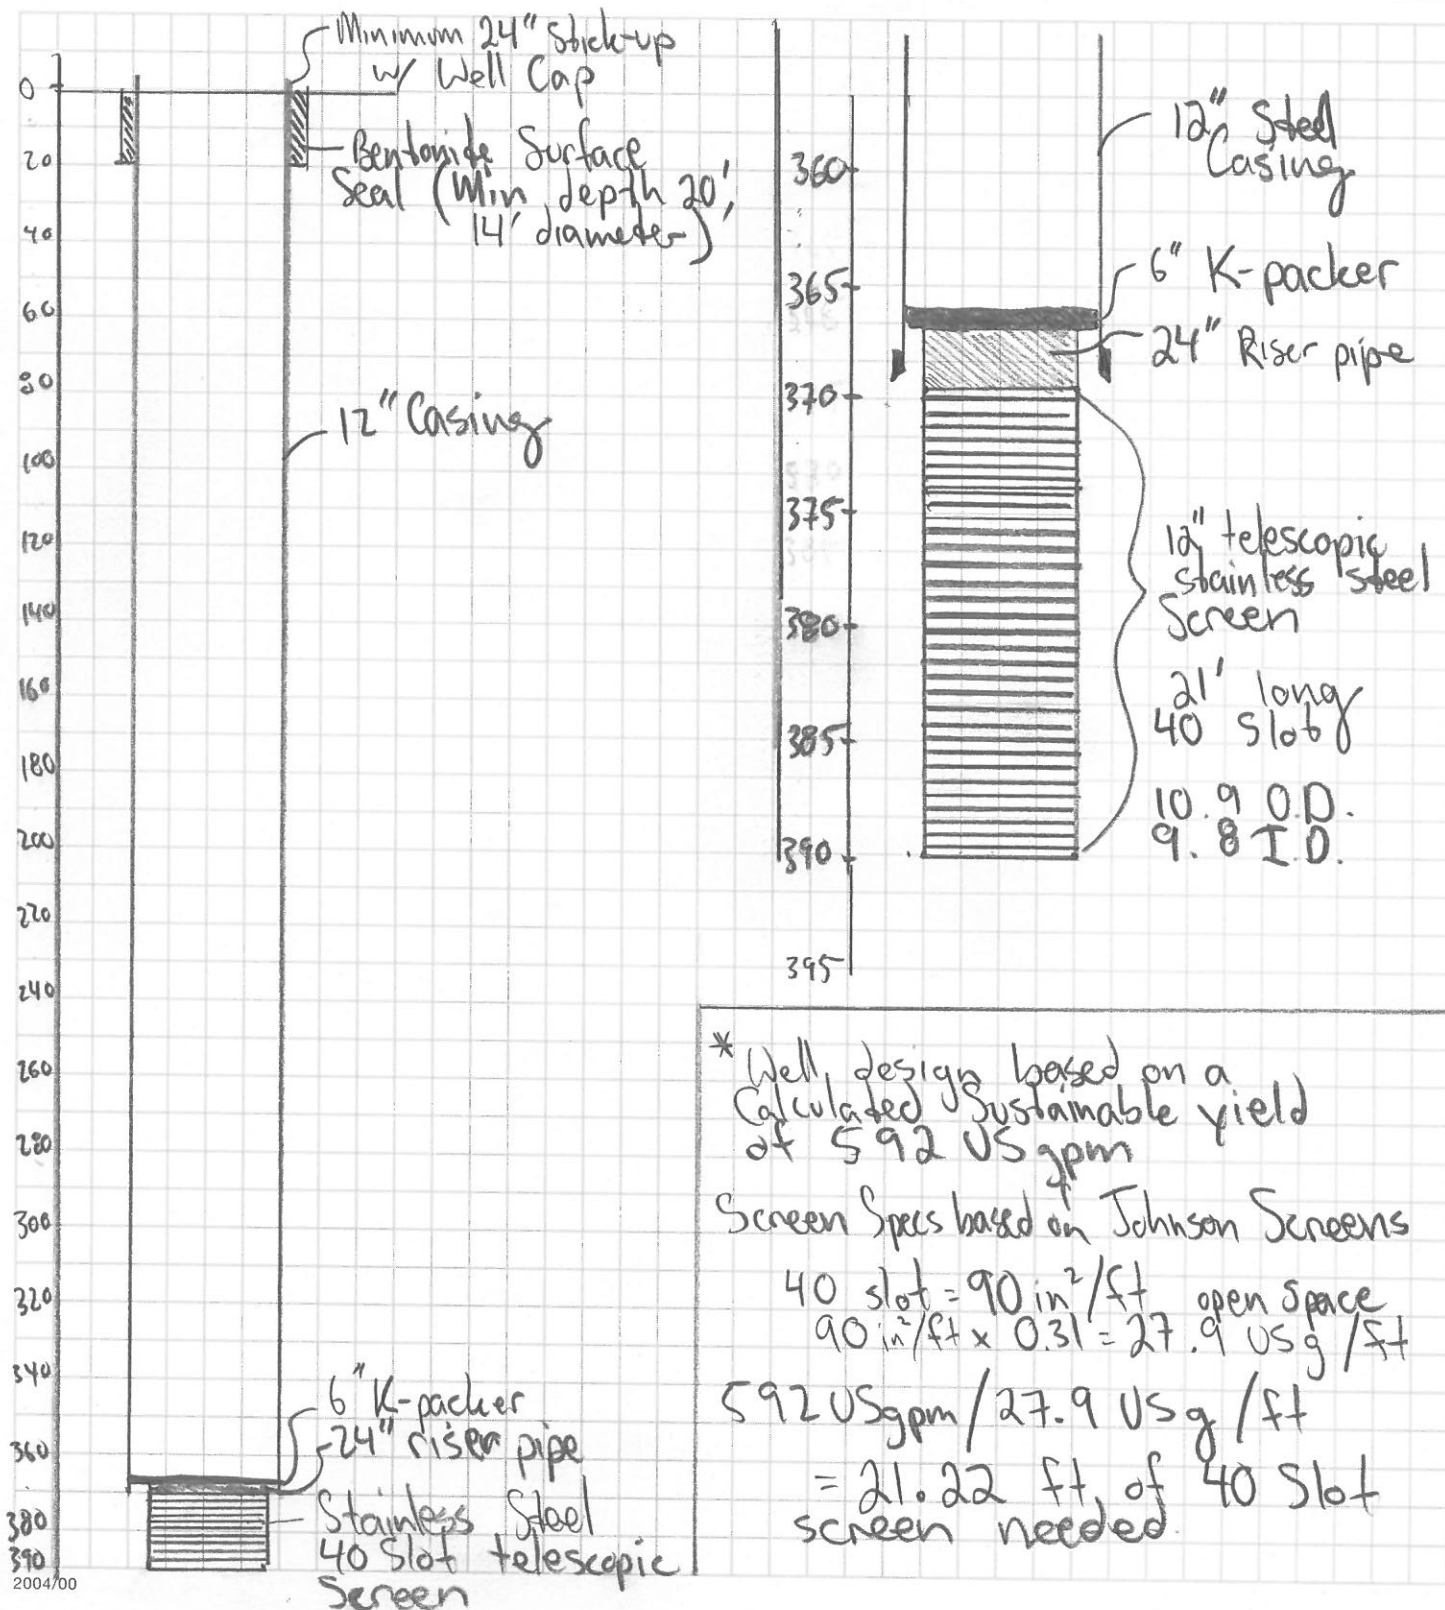 Minimum 24" Stick-up
w/ Well Cap
0
20
40
60
80
100
120
140
160
180
200
220
240
260
280
300
320
340
360
380
390
Bentonite Surface
Seal (Min depth 20',
14' diameter)
12" Casing
6" K-packer
24" riser pipe
Stainless Steel
40 Slot telescopic
Screen
2004/00
360
365
370
375
380
385
390
395
12" Steel
Casing
6" K-packer
24" Riser pipe
12" telescopic
stainless steel
Screen
21' long
40 Slot
10.9 O.D.
9.8 I.D.
* Well design based on a
Calculated Sustainable yield
of 592 USgpm
Screen Specs based on Johnson Screens
40 slot = 90 in²/ft open space
90 in²/ft x 0.31 = 27.9 USg/ft
592 USgpm/27.9 USg/ft
= 21.22 ft, of 40 Slot
screen needed.